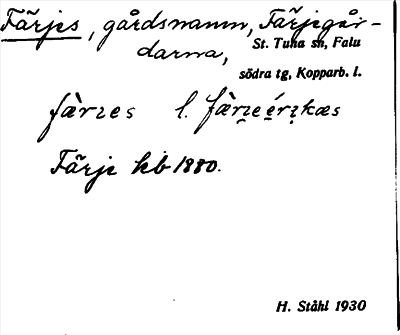 Färjes, gårdsnamn, Färjegår-
darna,
St. Tuna sn, Falu
södra tg, Kopparb. l.
fàrɪes l.
Färje hb 1880.
H. Ståhl 1930